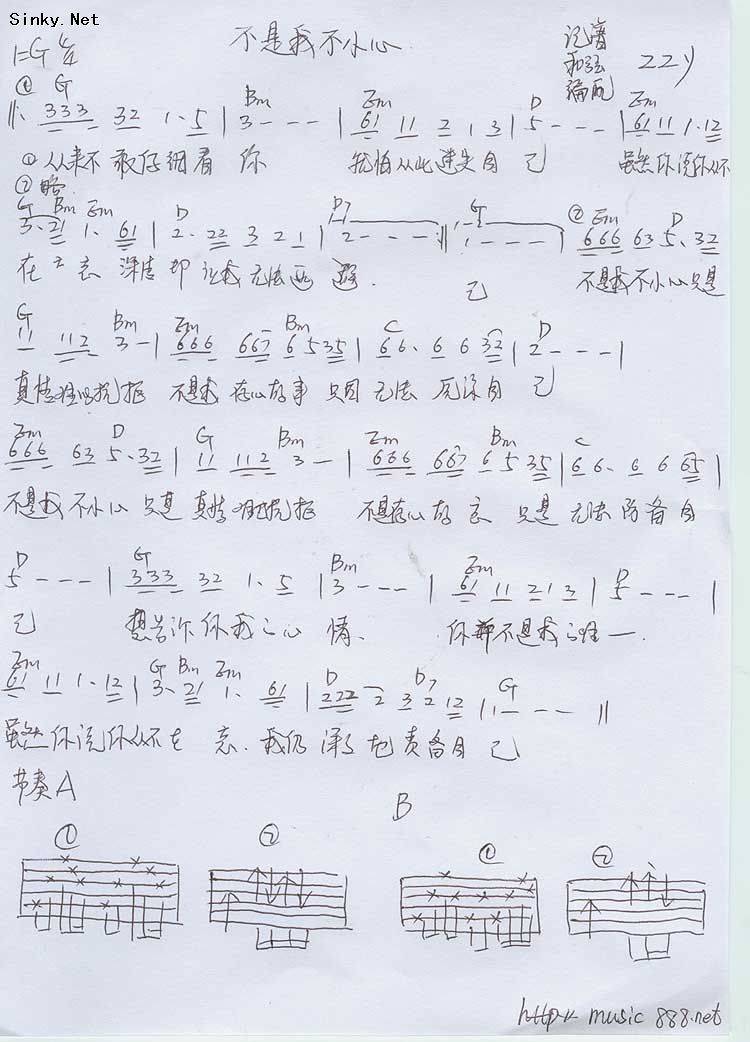 Sinky.Net
不是我不小心
1=G 4/4
记谱
和弦
编配
zzy
① G Bm Em D Em
333 32 1· 5 | 3 - - - | 61 11 2 1 3 | 5 - - - | 61 11 1·12
①从来不敢仔细看你 我怕从此迷失自己 虽然你说你从不
②略
G Bm Em D D7 G ② Em D
3·21 1· 61 | 2· 22 3 2 1 | 2 - - - 1 - - - 666 63 5·32
在乎 深情却让我无法 己 不是我不小心只是
G Bm Em Bm C D
11 112 3 - | 666 667 6 535 | 66· 6 6 32 | 2 - - - |
真情难以抗拒 不是我存心故事 只因无法 自己
Em D G Bm Em Bm C
666 63 5·32 | 11 112 3 - | 666 667 6 5 35 | 66· 6 6 65 |
不是我不小心 只是真情难以抗拒 不是存心故意 只是无法防备自
D G Bm Em D
5 - - - | 333 32 1· 5 | 3 - - - | 61 11 21 3 | 5 - - - |
己 想告诉你我的心情 你却不是我的唯一
Em G Bm Em D D7 G
61 11 1·12 | 3·21 1· 61 | 222 2 3 2 12 | 1 - - - ||
虽然你说你从不在意 我仍深深地责备自己
节奏A B
① ② ① ②
http music888.net